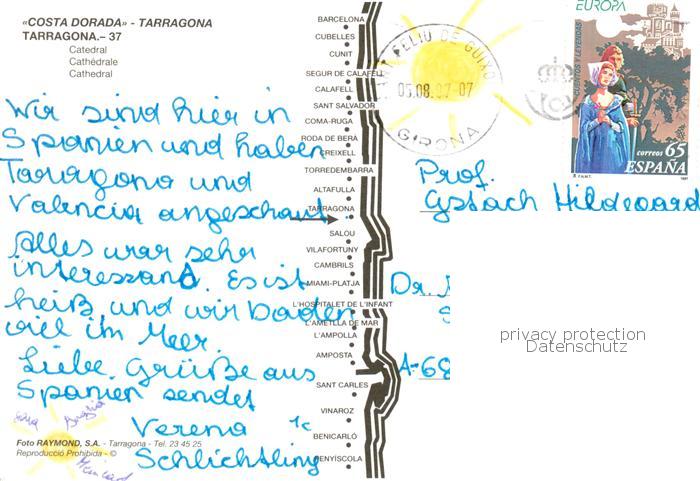 «COSTA DORADA» - TARRAGONA
TARRAGONA.– 37
Catedral
Cathédrale
Cathedral
Wir sind hier in
Spanien und haben
Tarragona und
Valencia angeschaut.
Alles war sehr
interessant. Es ist
heiß und wir baden
viel im Meer.
Liebe Grüße aus
Spanien sendet
Verena 1c
Schlichtling
Foto RAYMOND, S.A. - Tarragona - Tel. 23 45 25
Reproducció Prohibida - ©
BARCELONA
CUBELLES
CUNIT
SEGUR DE CALAFELL
CALAFELL
SANT SALVADOR
COMA-RUGA
RODA DE BERÀ
CREIXELL
TORREDEMBARRA
ALTAFULLA
TARRAGONA
SALOU
VILAFORTUNY
CAMBRILS
MIAMI-PLATJA
L'HOSPITALET DE L'INFANT
L'AMETLLA DE MAR
L'AMPOLLA
AMPOSTA
SANT CARLES
VINAROZ
BENICARLÓ
PENYÍSCOLA
FELIU DE GUIXO
05.08.97-07
GIRONA
EUROPA
CUENTOS Y LEYENDAS
correos 65
ESPAÑA
1997
Prof.
Gstach Hildegard
Dr.
A-68
privacy protection
Datenschutz